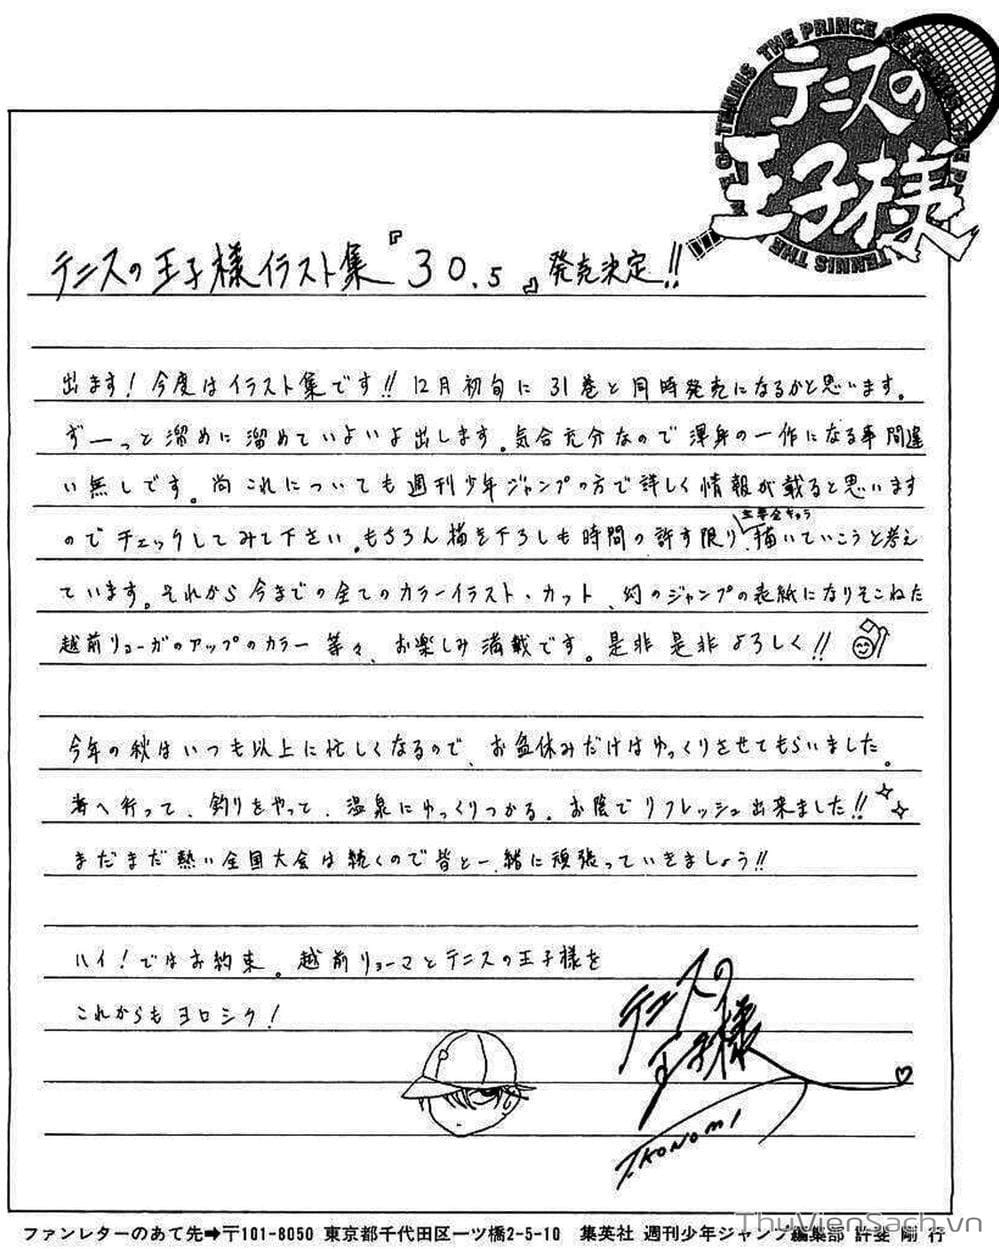 THE PRINCE OF TENNIS THE PRINCE OF TENNIS
テニスの
王子様
テニスの王子様イラスト集『30.5』発売決定!!
出ます！今度はイラスト集です!! 12月初旬に31巻と同時発売になるかと思います。
ずーっと溜めに溜めていよいよ出します。気合充分なので渾身の一作になる事間違
い無しです。尚これについても週刊少年ジャンプの方で詳しく情報が載ると思います
のでチェックしてみて下さい。もちろん描き下ろしも時間の許す限り、描いていこうと考え
ています。それから今までの全てのカラーイラスト・カット、幻のジャンプの表紙になりそこねた
越前リョーガのアップのカラー等々、お楽しみ満載です。是非是非よろしく!!
今年の秋はいつも以上に忙しくなるので、お盆休みだけはゆっくりさせてもらいました。
海へ行って、釣りをやって、温泉にゆっくりつかる。お陰でリフレッシュ出来ました!!
まだまだ熱い全国大会は続くので皆と一緒に頑張っていきましょう!!
ハイ！ではお約束。越前リョーマとテニスの王子様を
これからもヨロシク！
テニスの
王子様
T.KONOMI
ファンレターのあて先➡〒101-8050 東京都千代田区一ツ橋2-5-10 集英社 週刊少年ジャンプ編集部 許斐 剛 行
ThuVienSach.vn